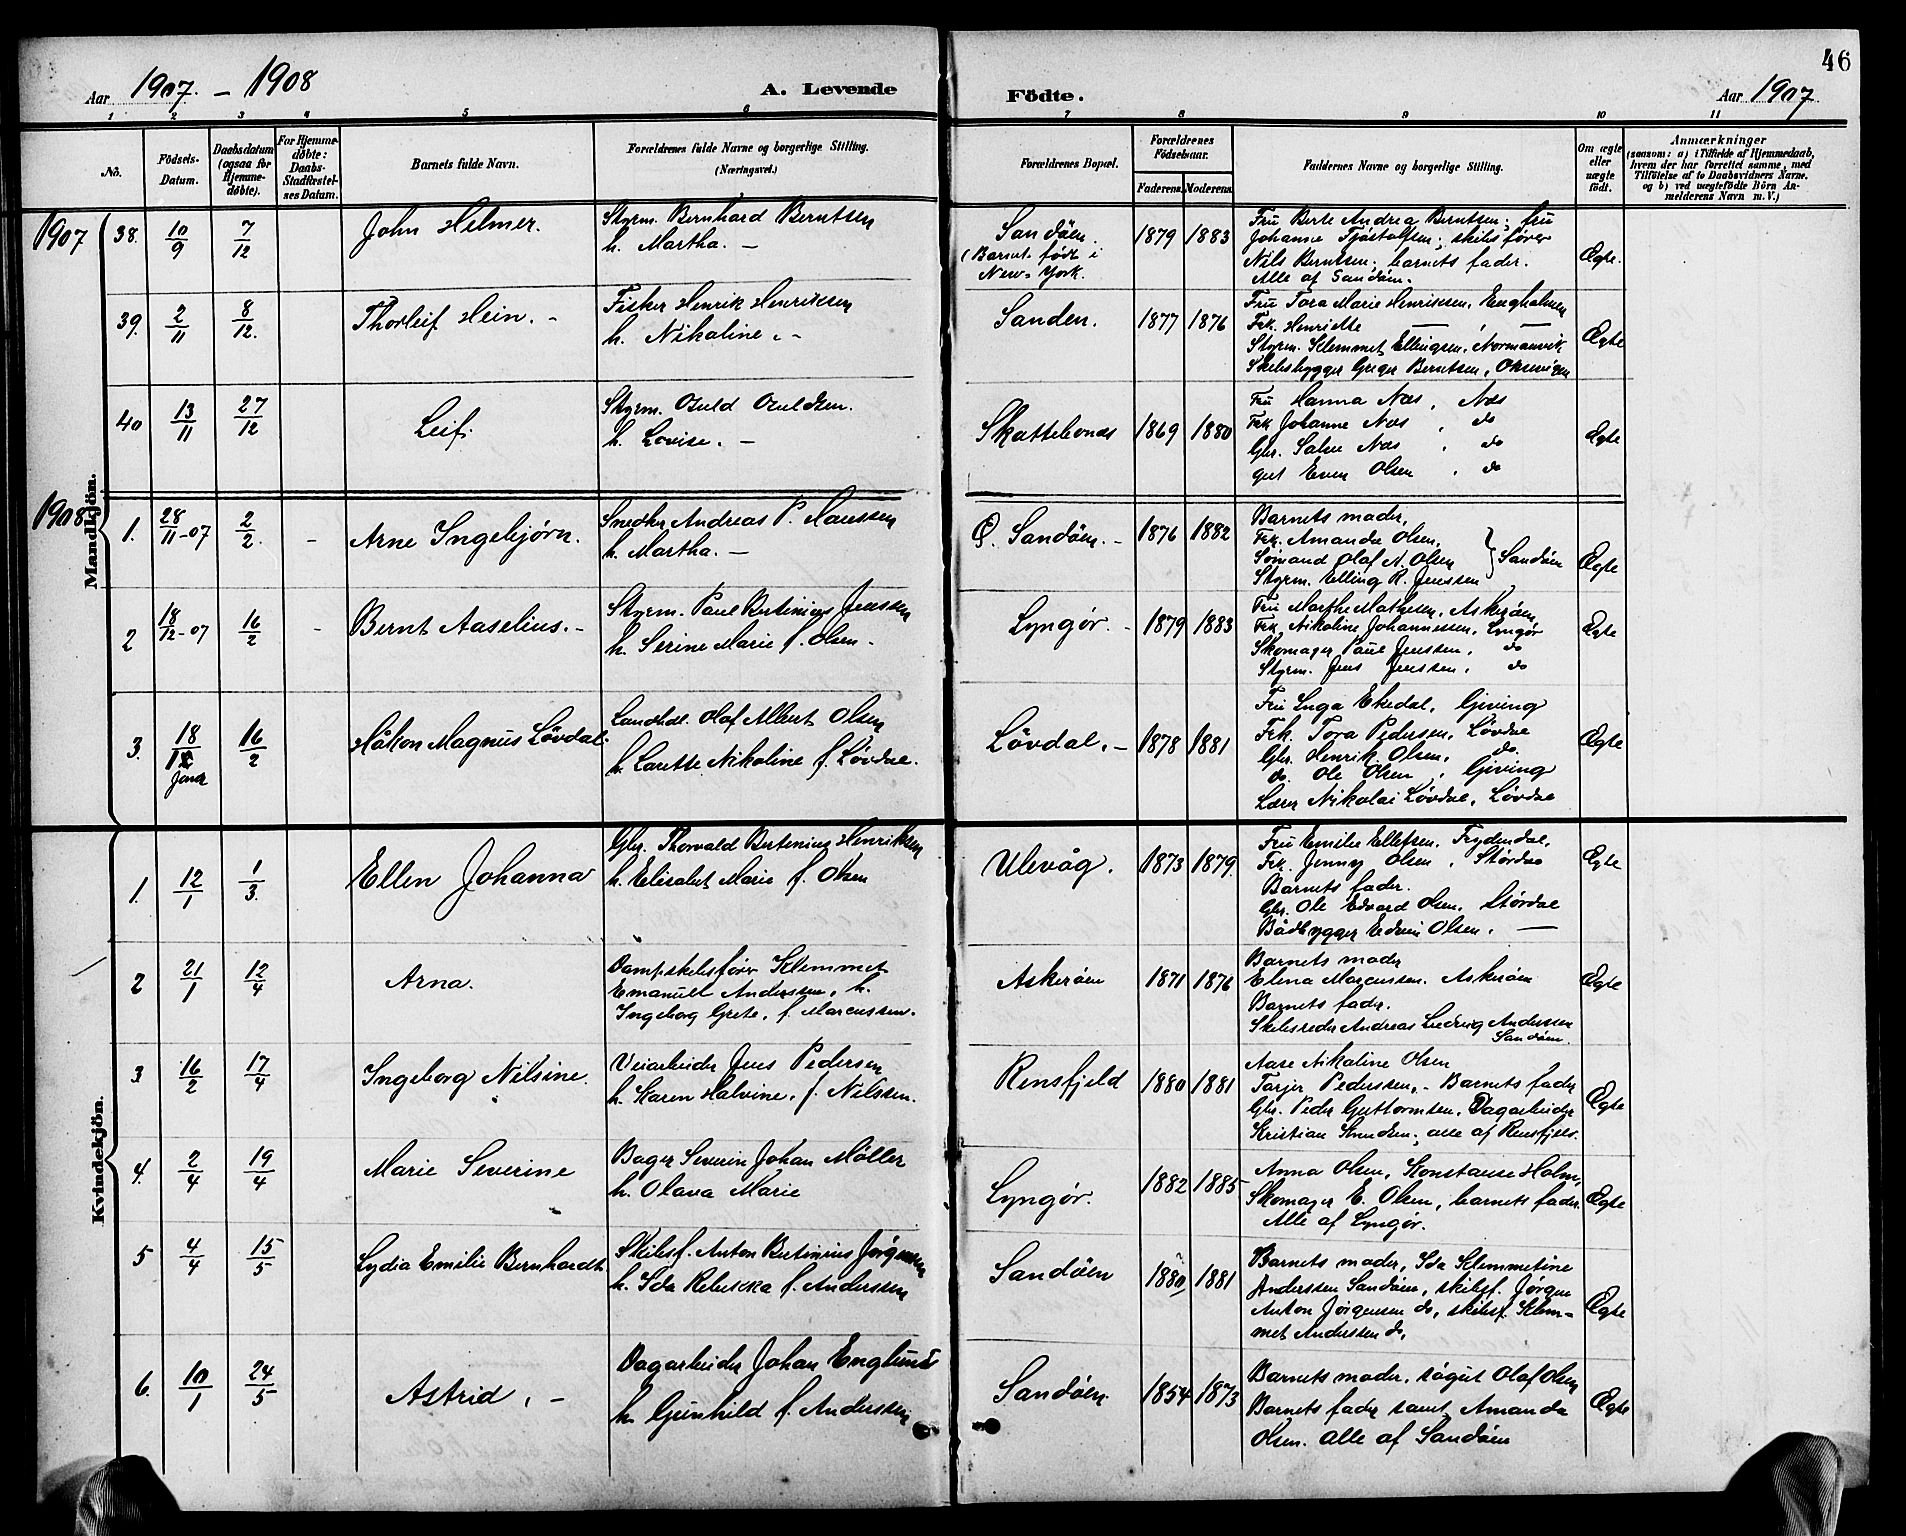 46
Aar 1907. - 1908 A. Levende Födte. Aar 1907.
1 2 3 4 5 6 7 8 9 10 11
No.
Födsels-Datum.
Daabsdatum (ogsaa for Hjemme-döbte).
For Hjemme-döbte: Daabs-Stadfæstel-ses Datum.
Barnets fulde Navn.
Forældrenes fulde Navne og borgerlige Stilling. (Næringsvei.)
Forældrenes Bopæl.
Forældrenes Födselsaar.
Faderens. Moderens.
Faddernes Navne og borgerlige Stilling.
Om ægte eller uægte födt.
Anmærkninger
(saasom: a) i Tilfælde af Hjemmedaab, hvem der har forrettet samme, med Tilföielse af to Daabsvidners Navne, og b) ved uægtefödte Börn An-melderens Navn m. V.)
Mandkjön.
1907
38. 10/9 7/12 John Helmer.
Styrm. Bernhard Berntsen
h. Martha. —
Sandöen.
(Barnet født i
New-York.
1879 1883
Fru Berte Andrea Berntsen; fru
Johanne Tjøstolfsen; skibsfører
Nils Berntsen; barnets fader.
Alle af Sandöen.
Ægte.
39. 2/11 8/12. Thorleif Hein. -
Fisker Henrik Henriksen
h. Nikoline. -
Sanden.
1877 1876
Fru Tora Marie Henriksen, Engholmen
Frk. Henriette — , —
Styrm. Klemmet Ellingsen, Normannvik
Skibsbygger Greger Berntsen, Oksevigen
Ægte
40 13/11 27/12 Leif.
Styrm. Osuld Osuldsen.
h. Lovise. —
Skattebonæs
1869 1880
Fru Hanna Næs, Næs
Frk Johanne Næs , do
Gbr. Salve Næs , do
gut Even Olsen , do
Ægte
1908
1. 28/11-07 2/2. - Arne Ingebjørn.
Snedker Andreas P. Hanssen
h. Martha. —
Ø. Sandöen. -
1876 1882
Barnets moder,
Frk. Amanda Olsen,
Sømand Olaf N. Olsen } Sandöen
Styrm. Elling R. Jenssen
Ægte
2 18/12-07 16/2 - Bernt Aaselius. -
Styrm. Paul Bertinius Jenssen
h. Serine Marie f. Olsen -
Lyngør. -
1879 1883
Fru Marthe Mathisen, Askerøen,
Frk. Nikoline Johannessen, Lyngør
Skomager Paul Jenssen, do
Styrm. Jens Jenssen, do
Ægte
3. 18/1 Januar 16/2 Håkon Magnus Lövdal.
Landhdl. Olaf Albert Olsen
h. Laretse Nikoline f. Lövdal.
Lövdal. -
1878 1881
Fru Inga Ekedal, Giving
Frk. Tora Pedersen, Lövdal
Gbr. Henrik Olsen, do.
do. Ole Olsen , Giving
Lærer Nikolai Lövdal, Lövdal
Ægte
Kvindekjön.
1. 12/1 1/3 Ellen Johanna
Gbr. Thorvald Bertinius Henriksen
h. Elisabet Marie f. Olsen
Ulevåg.
1873 1879.
Fru Emilie Ellefsen, Frydendal,
Frk. Jenny Olsen, Størdal
Barnets fader.
Gbr. Ole Edvard Olsen, Størdal
Bådbygger Edvin Olsen. —
Ægte
2 21/1 12/4 Arna.
Dampskibsfører Klemmet
Emanuell Anderssen, h.
Ingeborg Grete, f. Marcussen.
Askerøen
1871 1876
Barnets moder
Elina Marcussen. Askerøen
Barnets fader.
Skibsreder Andreas Ludvig Andersen
Sandöen.
Ægte
3 16/2 17/4 Ingeborg Nilsine.
Veiarbeider Jens Pedersen
h. Karen Halvine, f. Nilssen.
Rensfjeld
1880 1881
Aase Nikoline Olsen
Tarjer Pederssen, - Barnets fader
Gbr. Peder Guttormsen, Dagarbeider
Kristian Knudsen, alle af Rensfjeld.
Ægte
4. 2/4 19/4 Marie Severine
Bager Severin Johan Møller
h. Olava Marie
Lyngør.
1882 1885
Anna Olsen, Konstanse Holm,
Skomager E. Olsen, barnets fader.
Alle af Lyngør.
Ægte
5 4/4 15/5 Lydia Emilie Bernhardt
Skibsf. Anton Bertinius Jörgensen
h. Ida Rebekka f. Anderssen
Sandøen
1880 1881
Barnets moder, Ida Klemmetine
Anderssen Sandöen, skibsf. Jørgen
Anton Jørgensen do, skibsf. Klem-
met Anderssen do.
Ægte
6. 10/1 24/5 Astrid. -
Dagarbeider Johan Englund
h. Gunhild f. Anderssen
Sandøen
1854 1873
Barnets moder, søgut Olaf Olsen
Barnets fader samt Amanda
Olsen. alle af Sandöen
Ægte